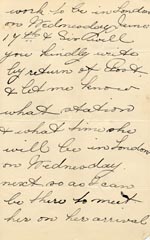 work to be in London
on Wednesday June
14th & Sir Will
you kindly write
by return of Post
& let me know
what station
& what time she
will be in London
on Wednesday
next so as I can
be there to meet
her on her arrival